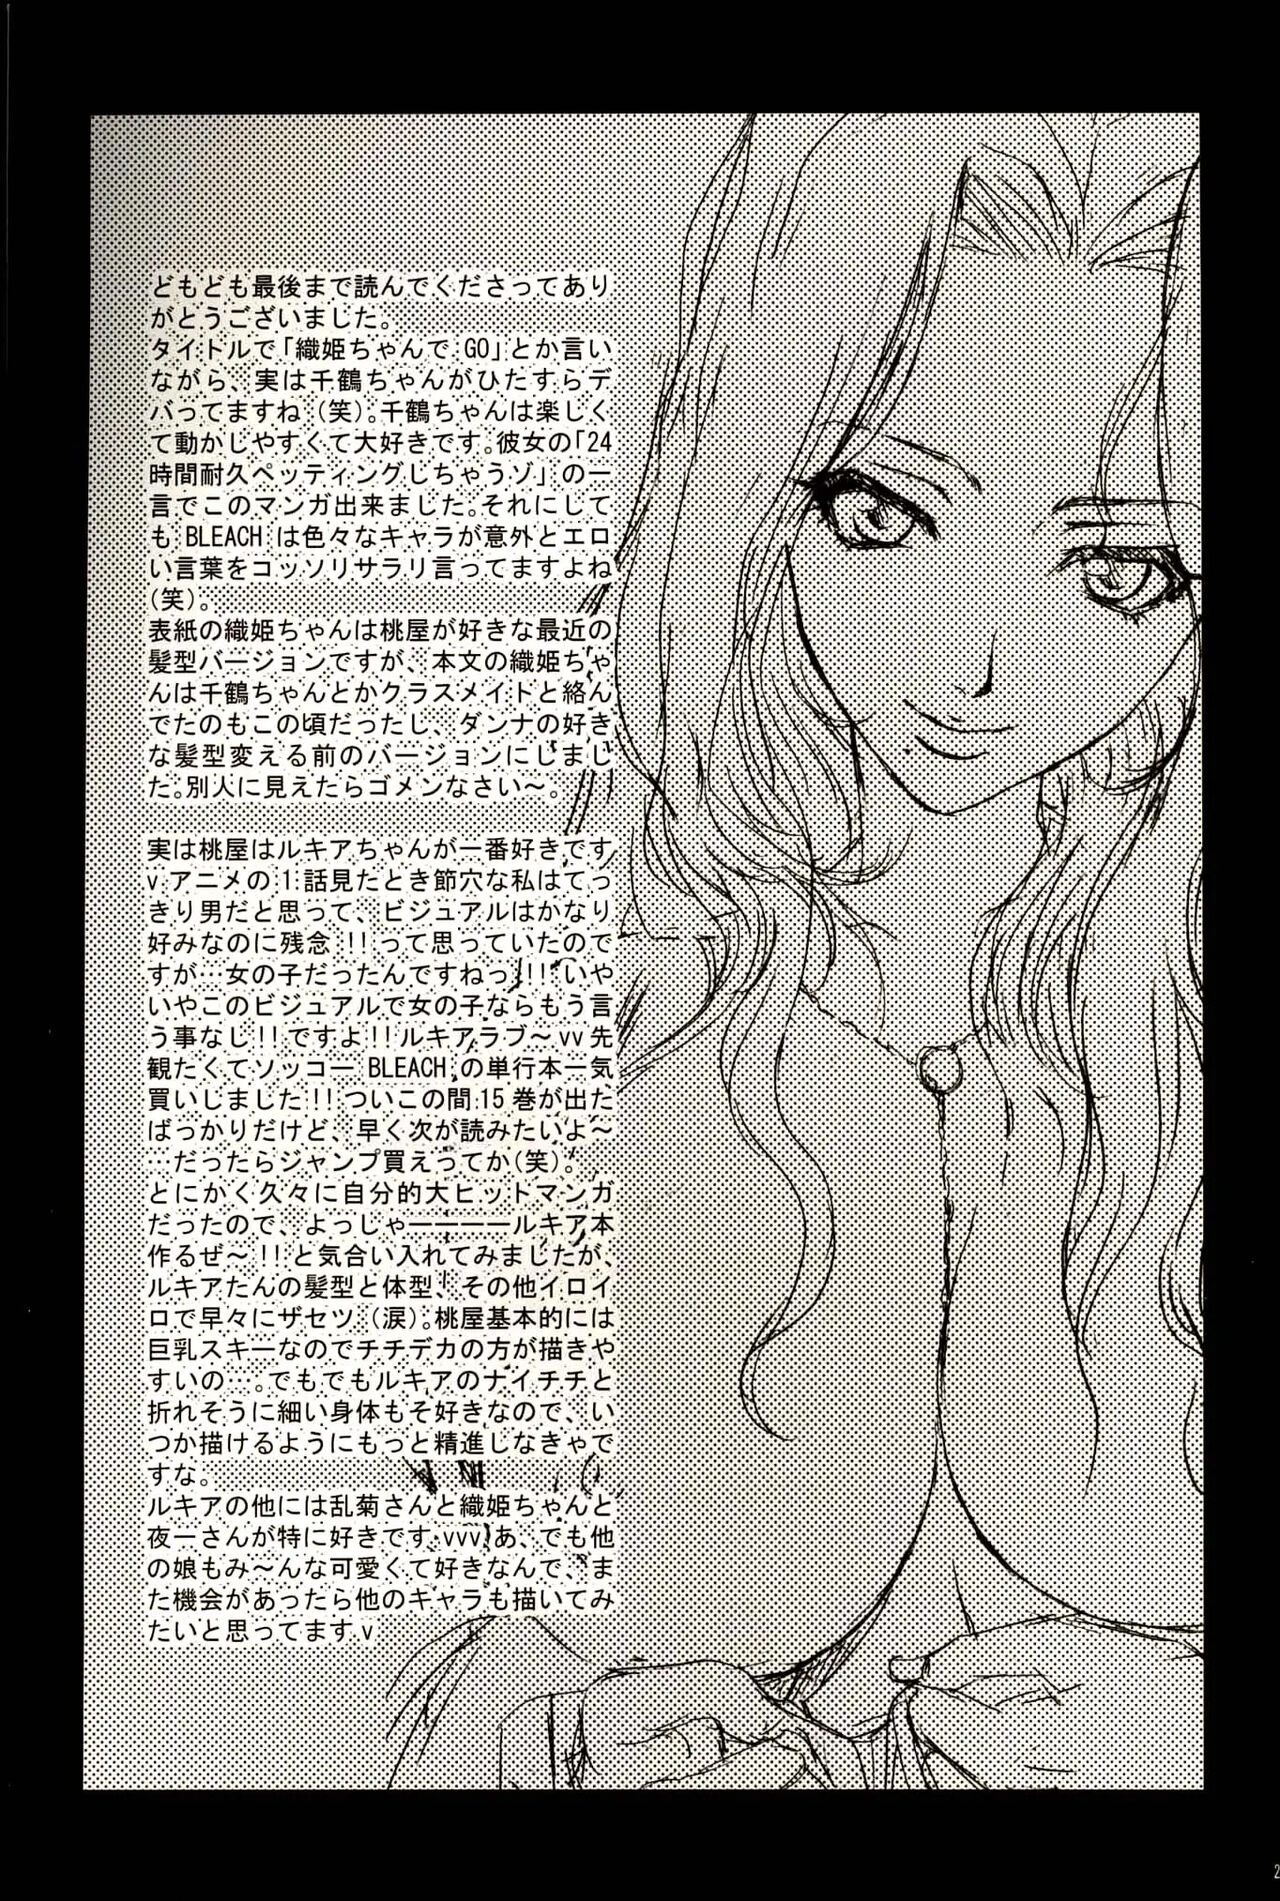 どもども最後まで読んでくださってあり
がとうございました。
タイトルで「織姫ちゃんで GO」とか言い
ながら、実は千鶴ちゃんがひたすらデ
バってますね（笑）。千鶴ちゃんは楽しく
て動かしやすくて大好きです。彼女の「24
時間耐久ペッティングしちゃうゾ」の一
言でこのマンガ出来ました。それにして
も BLEACH は色々なキャラが意外とエロ
い言葉をコッソリサラリ言ってますよね
（笑）。
表紙の織姫ちゃんは桃屋が好きな最近の
髪型バージョンですが、本文の織姫ちゃ
んは千鶴ちゃんとかクラスメイドと絡ん
でたのもこの頃だったし、ダンナの好き
な髪型変える前のバージョンにしまし
た。別人に見えたらゴメンなさい～。
実は桃屋はルキアちゃんが一番好きです
v アニメの 1 話見たとき節穴な私はてっ
きり男だと思って、ビジュアルはかなり
好みなのに残念!!って思っていたので
すが…女の子だったんですねっ!!いや
いやこのビジュアルで女の子ならもう言
う事なし!!ですよ!!ルキアラブ～vv 先
観たくてソッコー BLEACH の単行本一気
買いしました!!ついこの間 15 巻が出た
ばっかりだけど、早く次が読みたいよ～
…だったらジャンプ買えってか（笑）。
とにかく久々に自分的大ヒットマンガ
だったので、よっしゃーーーールキア本
作るぜ～!!と気合い入れてみましたが、
ルキアたんの髪型と体型、その他イロイ
ロで早々にザセツ（涙）。桃屋基本的には
巨乳スキーなのでチチデカの方が描きや
すいの…。でもでもルキアのナイチチと
折れそうに細い身体もそ好きなので、い
つか描けるようにもっと精進しなきゃで
すな。
ルキアの他には乱菊さんと織姫ちゃんと
夜一さんが特に好きです vvv あ、でも他
の娘もみ～んな可愛くて好きなんで、ま
た機会があったら他のキャラも描いてみ
たいと思ってます v
2